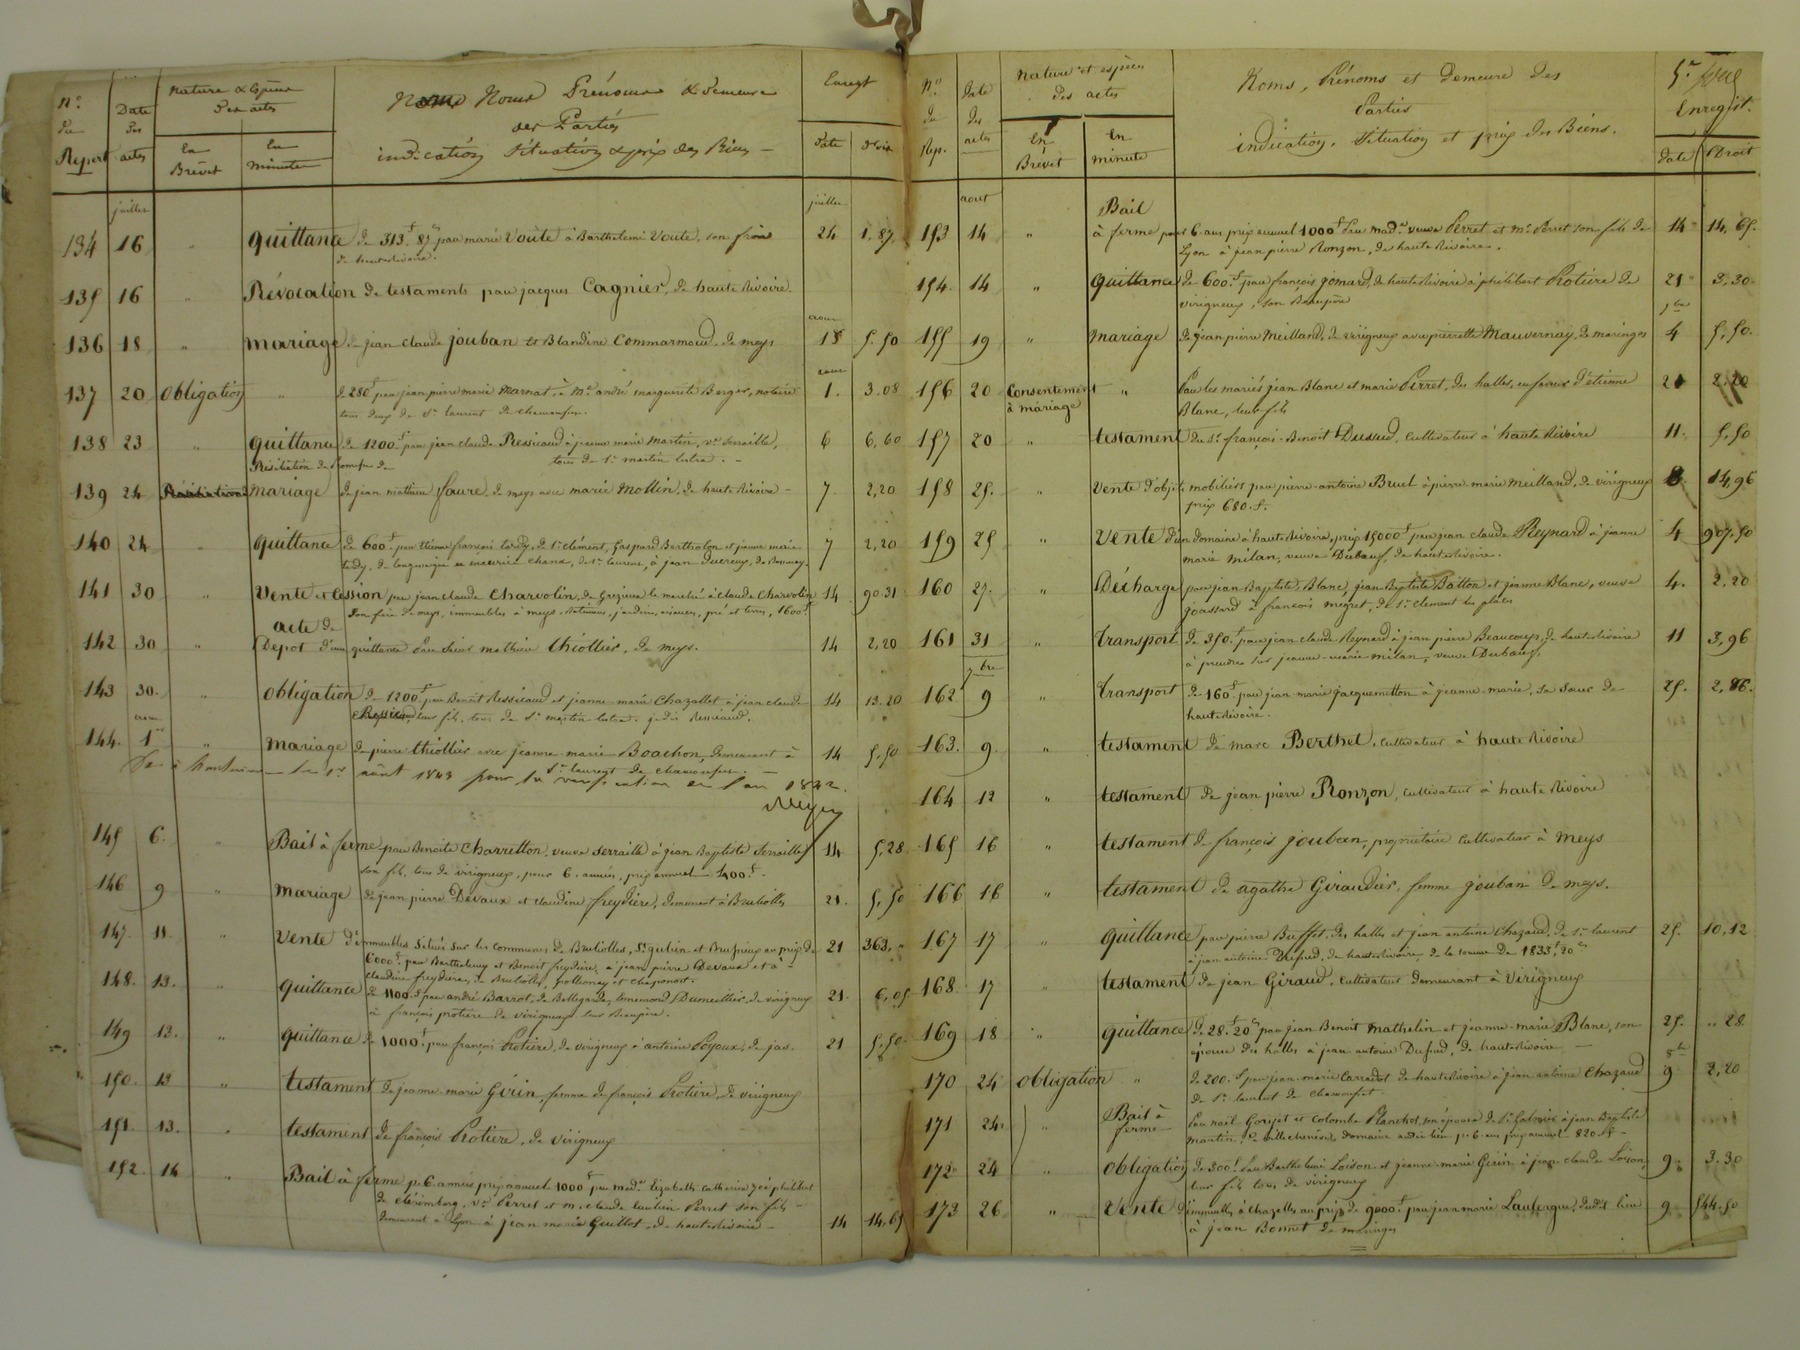 N.o du Repert
Date des actes
Nature & Espèce des actes
En Brevet
En Minute
Noms Prénoms & demeure
des Parties
indication Situation & prix des Biens
Enregt
date
droit
juillet
juillet
134 16 " quittance de 313f 87c par marie Voute à Barthelemi Voute, son frère 24 1,87
de haute Rivoire.
135 16 " Révocation de testaments par jacques Cagnier, de haute Rivoire
aout
136 18 " mariage de jean claude jouban et Blandine Commarmond, de meys 18 5.50
aout
137 20 obligation " de 280f par jean pierre marie marnat à Me andré marguerite Berger, notaire 1. 3.08
tous deux de St laurent de chamousset.
138 23 " quittance de 1200f par jean claude Ressicaud à jeanne marie martin, ve Serraille, 6 6,60
tous de St martin lestra.
Résiliation de Promesse de
139 24 mariage de jean mathieu faure, de meys avec marie Mollin, de haute Rivoire 7. 2,20
140 24 " quittance de 600f par étienne françois tardy, de St clément, Gaspard Bertholon et jeanne marie 7 2,20
tardy, de longessaigne et chana, de St laurent, à jean
141 30 " Vente et Cession par jean claude Charvolin, de Grézieu le marché à claude Charvolin 14 90.31
son frère de meys, immeubles à meys, batiments, jardin, aisances, pré et terres, 1600f
acte de
142 30 " Depot d'une quittance par Sieur mathieu Thiollier, de meys. 14 2,20
143 30. " obligation de 1200f par Benoit Ressicaud et jeanne marie Chazallet à jean claude 14 13.20
Ressicaud, leur fils, tous de St martin lestra.
aout
144. 1er " mariage de pierre thiollier avec jeanne marie Boachon, demeurant à 14 5,50
St laurent de chamousset.
le 1er aout 1843 pour la verification de l'an 1842.
145 6. " Bail à ferme par Benoite Charretton, veuve Serraille à jean Baptiste Serraille 14 5,28
son fils, tous de virigneux, pour 6 années, prix annuel 400f.
146 9 " mariage de jean pierre Devaux et claudine freydière, demeurant à Brulliolles 21. 5,50
147. 11. " Vente d'immeubles situés sur les communes de Brulliolles, St gulin et Brussieux au prix de 21 363,"
6000f par Barthelemy et Benoit freydière, à jean pierre Devaux et à
claudine freydière, de Brulliolles, pollionay et chaponost.
148. 13. " quittance de 1100f par andré Barrot, de Bellegarde, Dumeillier, de virigneux 21. 6,05
à françois protière de virigneux leur Beaupère.
149 13. " quittance de 1000f par françois Protière, de virigneux à antoine Poyaux, de jas. 21 5,50
150. 13 " testament de jeanne marie Gérin, femme de françois Protière, de virigneux
151. 13. " testament de françois Protière, de virigneux
152. 14 " Bail à ferme pr 6 années prix annuel 1000f par made Elizabeth Catherine
de clérimberg, ve Perret et m. claude Perret son fils
demeurant à Lyon à jean marie Guillot, de haute Rivoire 14 14,65
N.o du Rep.
Date des actes
Nature et espèces des actes
En Brevet
En minute
Noms, Prénoms et demeure des
Parties
indication, Situation et prix des Biens.
Enregist.
date
Droit
aout
Bail
153 14 " à ferme pour 6 ans prix annuel 1000f par made veuve Perret et mr Perret son fils de 14 14,65.
Lyon à jean pierre Ronzon, de haute Rivoire.
154. 14 " quittance de 600f par françois gomard, de haute Rivoire à philibert Protière de 21 3,30
virigneux, son Beaupère
7bre
155 19 " mariage de jean pierre Meilland, de virigneux avec pierrette Mauvernay, de maringes 4 5,50.
156 20 Consentement à mariage " Par les mariés jean Blanc et marie Perret, des halles, en faveur d'étienne 21 2,20
Blanc, leur fils
157 20 " testament du Sr françois Benoit Dussud, Cultivateur à haute Rivoire 11. 5,50
158 25. " Vente d'objets mobiliers par pierre antoine Bruel à pierre marie Meilland, de virigneux 8. 14,96
prix 680.f.
159 25 " Vente d'un domaine à haute Rivoire, prix 15000f par jean claude Reynard à jeanne 4 907.50
marie milan, veuve Dubauf, de haute Rivoire.
160 27. " Décharge par jean Baptiste Blanc, jean Baptiste Batton et jeanne Blanc, veuve 4. 2.20
joassard à françois megret, de St clement les places
161 31 " transport de 350.f par jean claude Reynard à jean pierre Beaucoup, de haute Rivoire 11 3,96
à prendre sur jeanne marie milan, veuve Dubauf.
7bre
162 9 " transport de 160f par jean marie jacquemetton à jeanne marie, sa Soeur de 25. 2,86.
haute Rivoire.
163. 9 " testament de marc Berthet, Cultivateur à haute Rivoire
164 12 " testament de jean pierre Ronzon, Cultivateur à haute Rivoire
165 16 " testament de françois jouban, propriétaire Cultivateur à Meys
166 16 " testament de agathe Giraudier, femme jouban de meys.
167 17 " quittance par pierre Buffet, des halles et jean antoine Chazaud, de St laurent 25. 10,12
à jean antoine Dufud, de haute Rivoire, de la somme de 1833f 20c
168. 17 " testament de jean Giraud, Cultivateur demeurant à Virigneux
169 18 " quittance de 28.f 20c par jean Benoit Mathelin et jeanne marie Blanc, son 25. " 28
épouse des halles à jean antoine Dufud, de haute Rivoire
8bre
170 24 obligation " de 200.f par jean marie Carradot de haute Rivoire à jean antoine Chazaud 9 2,20
de St laurent de chamousset.
171 24. " Bail à ferme Par noël Gorjet et Colombe Planchet, son épouse de St à jean Baptiste
martin, de villechenève, domaine audit lieu pr 6 ans prix annuel 820.f
172 24 " obligation de 300f par Barthelemi Loison et jeanne marie Gérin à jean claude Loison, 9. 3.30
leur fils tous de virigneux
173 26 " Vente d'immeubles à chazelles au prix de 9000.f par jean marie Laubergue, dudit lieu 9 544.50
à jean Bonnet de maringes